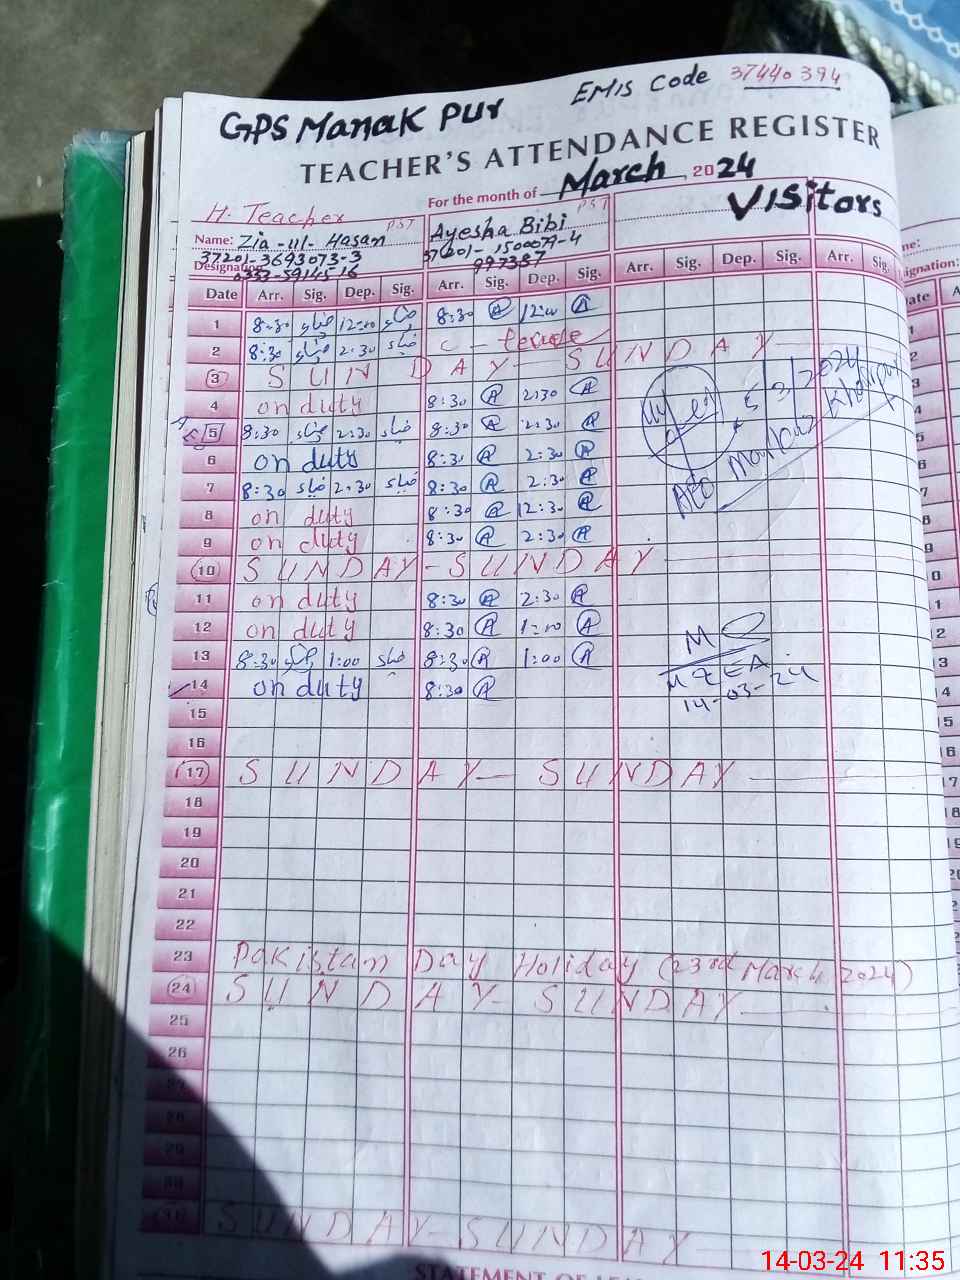 GPS Manak Pur EMIS Code 37440394
TEACHER'S ATTENDANCE REGISTER
For the month of March, 2024
H. Teacher PST PST Visitors
Name: Zia-ul-Hasan Ayesha Bibi
37201-3693073-3 37201-1500079-4
Designation 0332-5914516 997387
Date Arr. Sig. Dep. Sig. Arr. Sig. Dep. Sig. Arr. Sig. Dep. Sig. Arr. Sig.
1 8:30 ضیاء 12:00 ضیاء 8:30 A 12:00 A
2 8:30 ضیاء 2:30 ضیاء C - leave
3 SUNDAY — SUNDAY
4 on duty 8:30 A 2:30 A
5 8:30 ضیاء 2:30 ضیاء 8:30 A 2:30 A
6 on duty 8:30 A 2:30 A
7 8:30 ضیاء 2:30 ضیاء 8:30 A 2:30 A
8 on duty 8:30 A 12:30 A
9 on duty 8:30 A 2:30 A
10 SUNDAY - SUNDAY
11 on duty 8:30 A 2:30 A
12 on duty 8:30 A 1:00 A
13 8:30 ضیاء 1:00 ضیاء 8:30 A 1:00 A
14 on duty 8:30 A
14-03-24
15
16
17 SUNDAY — SUNDAY
18
19
20
21
22
23 Pakistan Day Holiday (23rd March 2024)
24 SUNDAY - SUNDAY
25
26
27
28
29
SUNDAY - SUNDAY
STATEMENT OF
14-03-24 11:35